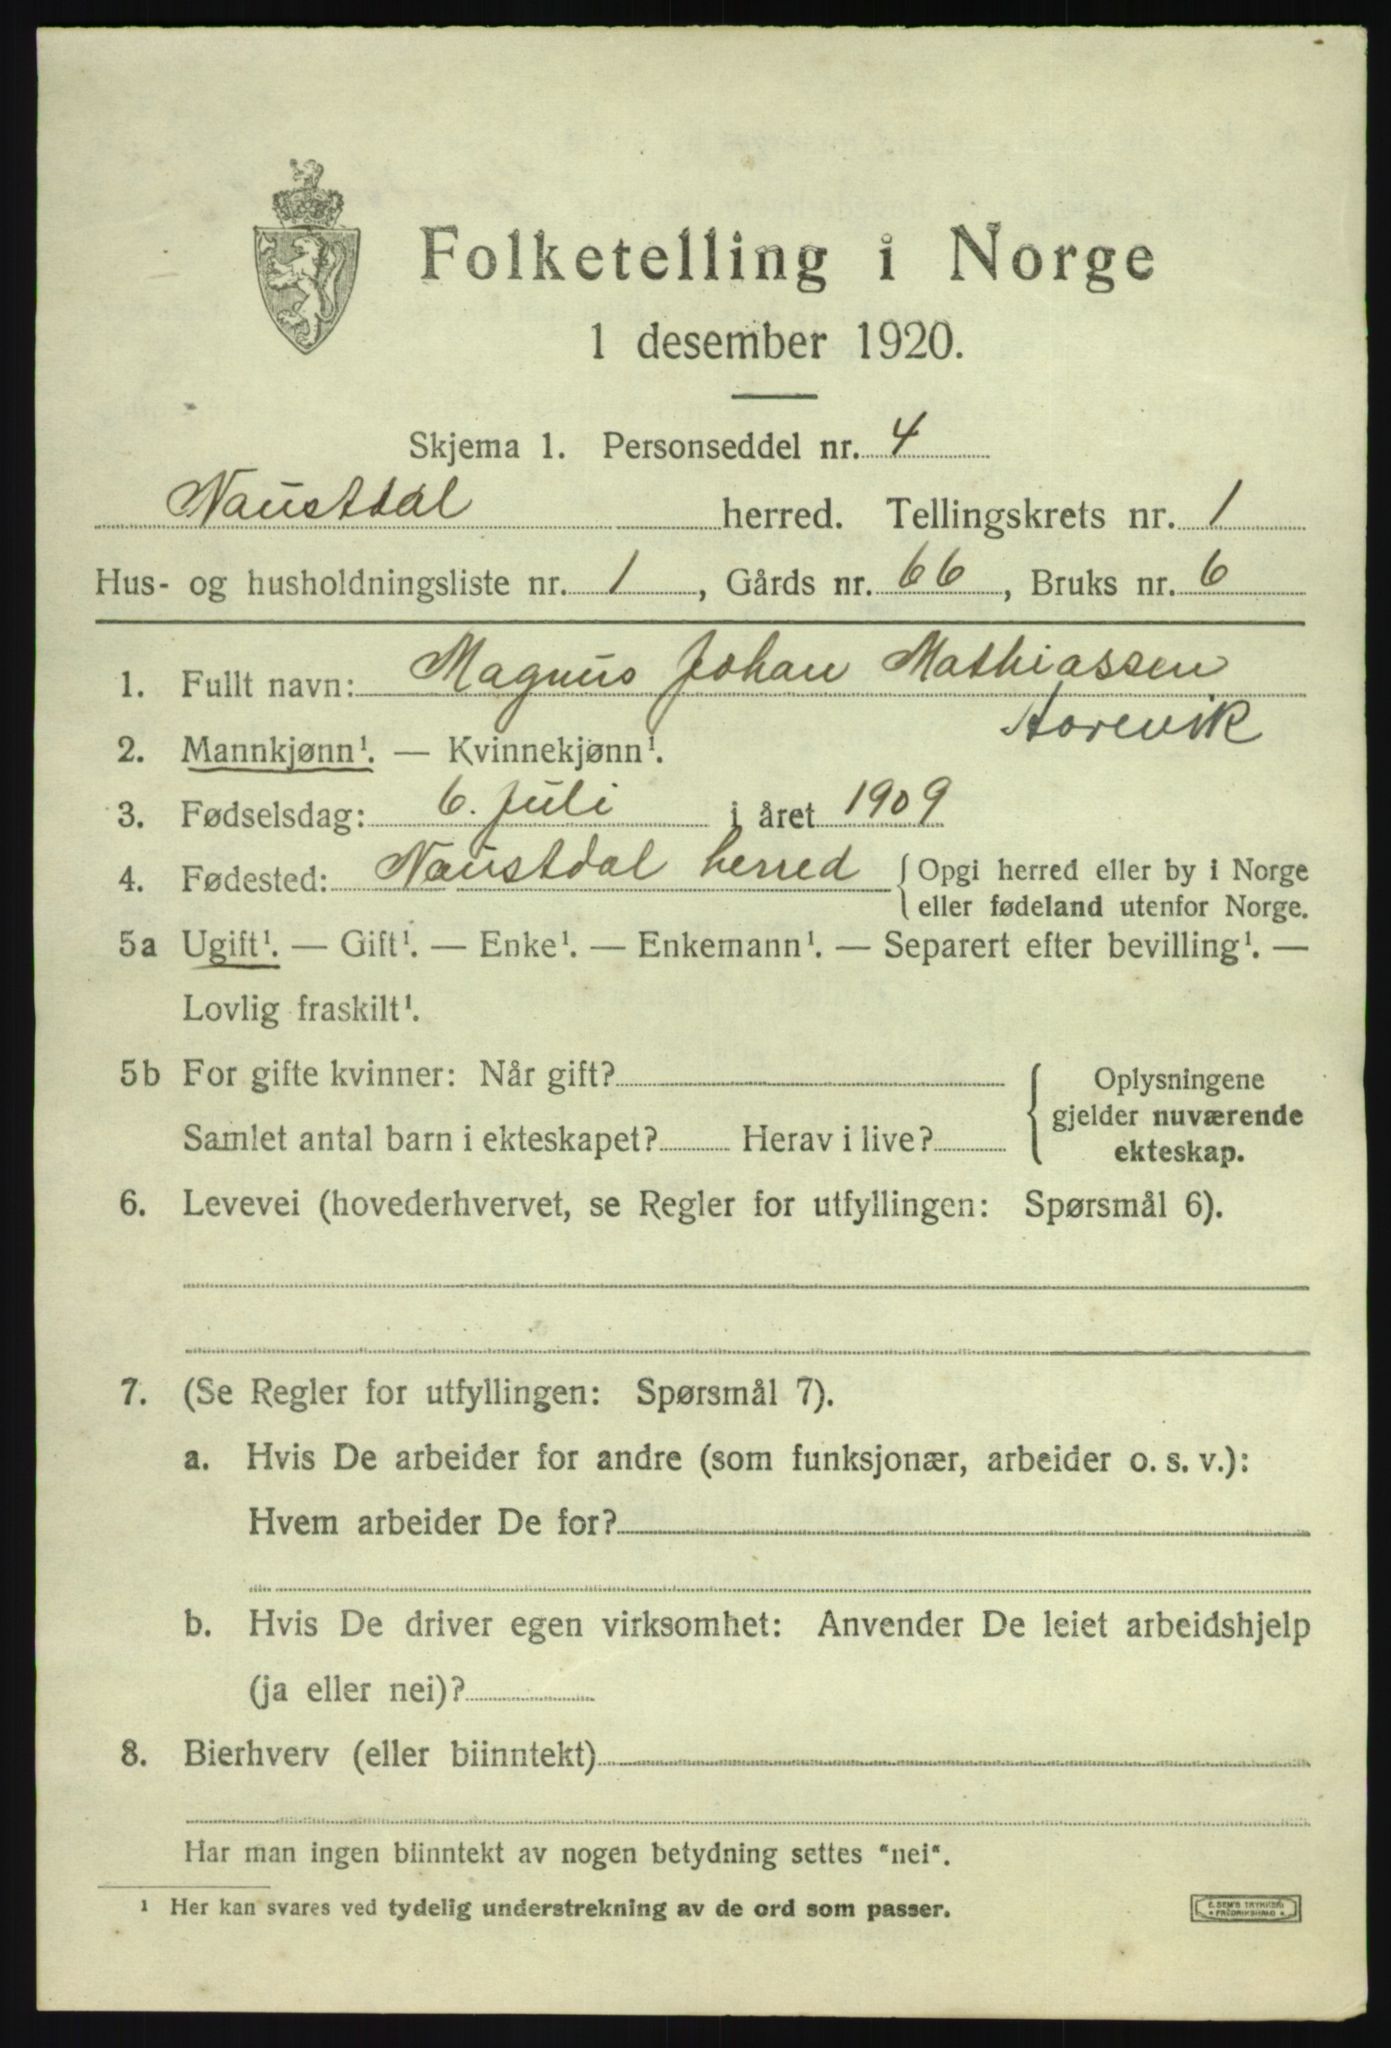 Folketelling i Norge
1 desember 1920.
Skjema 1. Personseddel nr. 4
Naustdal herred. Tellingskrets nr. 1
Hus- og husholdningsliste nr. 1, Gårds nr. 66, Bruks nr. 6
1. Fullt navn: Magnus Johan Mathiassen
Horevik
2. Mannkjønn¹. — Kvinnekjønn¹.
3. Fødselsdag: 6. Juli i året 1909
4. Fødested: Naustdal herred { Opgi herred eller by i Norge
eller fødeland utenfor Norge.
5a Ugift¹. — Gift¹. — Enke¹. — Enkemann¹. — Separert efter bevilling¹. —
Lovlig fraskilt¹.
5b For gifte kvinner: Når gift?
Samlet antal barn i ekteskapet? Herav i live?
{ Oplysningene
gjelder nuværende
ekteskap.
6. Levevei (hovederhvervet, se Regler for utfyllingen: Spørsmål 6).
7. (Se Regler for utfyllingen: Spørsmål 7).
a. Hvis De arbeider for andre (som funksjonær, arbeider o. s. v.):
Hvem arbeider De for?
b. Hvis De driver egen virksomhet: Anvender De leiet arbeidshjelp
(ja eller nei)?
8. Bierhverv (eller biinntekt)
Har man ingen biinntekt av nogen betydning settes "nei".
¹ Her kan svares ved tydelig understrekning av de ord som passer.
E. SEM'S TRYKKERI
FREDRIKSHALD